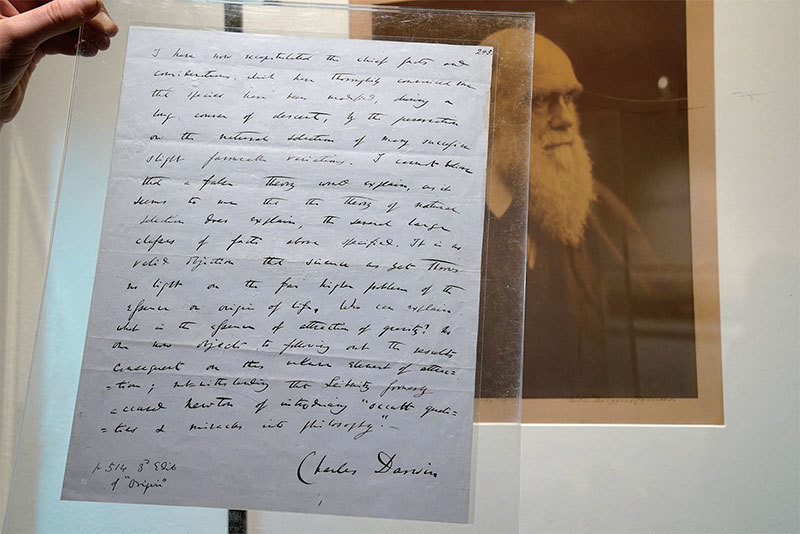 248
I have now recapitulated the chief facts and
considerations, which have thoroughly convinced me
that species have been modified, during a
long course of descent, by the preservation
or the natural selection of many successive
slight favourable variations. I cannot believe
that a false theory would explain, as it
seems to me that the theory of natural
selection does explain, the several large
classes of facts above specified. It is no
valid objection that science as yet throws
no light on the far higher problem of the
essence or origin of life. Who can explain
what is the essence of attraction of gravity? No
one now objects to following out the results
consequent on this unknown element of attrac-
=tion; notwithstanding that Leibnitz formerly
accused Newton of introducing "occult quali-
=ties & miracles into philosophy".—
Charles Darwin
p 514 3d Edit
of "Origin"